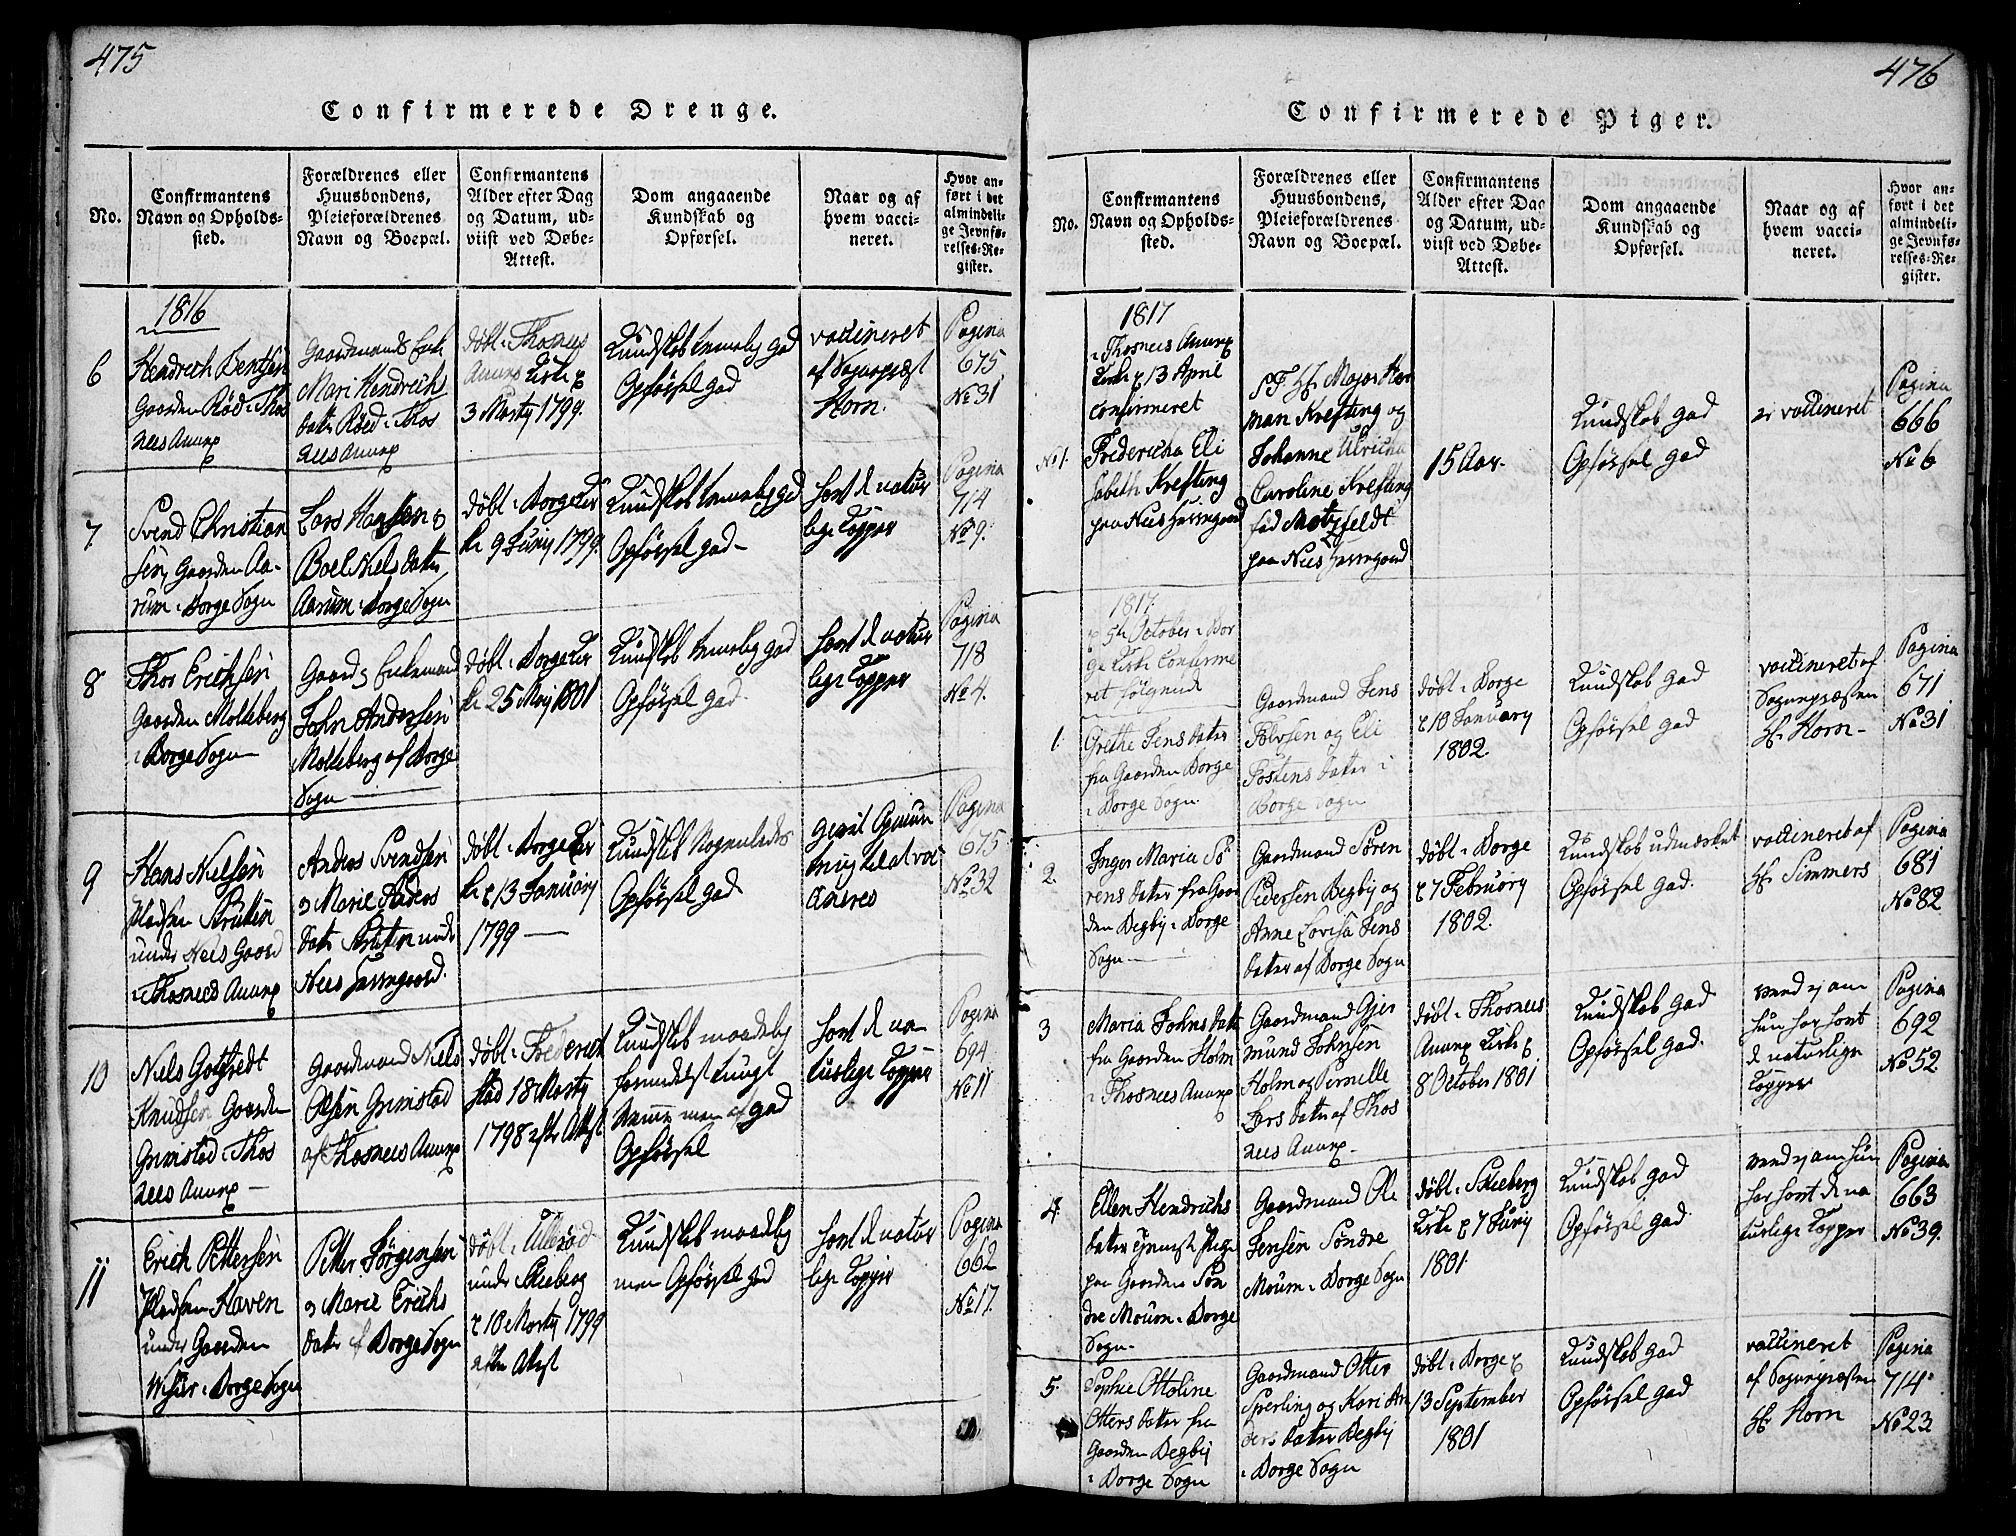 475
Confirmerede Drenge.
No.
Confirmantens
Navn og Opholds-
sted.
Forældrenes eller
Huusbondens,
Pleieforældrenes
Navn og Boepæl.
Confirmantens
Alder efter Dag
og Datum, ud-
viist ved Døbe-
Attest.
Dom angaaende
Kundskab og
Opførsel.
Naar og af
hvem vacci-
neret.
Hvor an-
ført i det
almindeli-
ge Jevnfø-
relses-Re-
gister.
1816
6
Hendrich Bentsen
Gaarden Röd i Thos
nees Annex
Gaardmands Enke
Mari Hendrichs
datter Röed i Thos
nees Annex
döbt i Thosnees
Annex Kirke
3 Marty 1799.
Kundskab temelig god
Opförsel god
vaccineret
af Sognepræst
Horn.
Pagina
675
No 31
7
Svend Christian
sen, Gaarden Aa-
rum i Borge Sogn
Lars Hansen &
Boel Niels datter
Aarum i Borge Sogn
döbt i Borge Kir
ke 9 Juny 1799.
Kundskab temelig god
Opförsel god-
havt de natur
lige Kopper
Pagina
714
No 9.
8
Thor Erichsen
Gaarden Molteberg
i Borge Sogn
Gaard Enkemand
John Andersen
Molteberg af Borge
Sogn
döbt i Borge Kir
ke 25 May 1801
Kundskab temelig god
Opförsel god.
havt de natur
lige Kopper
Pagina
718
No 4.
9
Hans Nielsen
Pladsen Bruten
under Nees Gaard
i Thosnees Annex
Anders Svendsen
& Marie Peders
datter Bruten under
Nees Herregaard.
döbt i Borge Kir
ke 13 January
1799
Kundskab Nogenledes
Opförsel god
Pagina
675
No 32
10
Niels Gotfredt
Knudsen Gaarden
Grimstad i Thos
nees Annex
Gaardmand Niels
Olsen Grimstad
af Thosnees Annex
döbt i Friderich
stad 18 Marty
1798 efter Attest
Kundskab maadelig
formedelst tungt
Nemme men af god
Opförsel
havt de na
turlige Kopper
Pagina
694
No 11
11
Erich Pettersen
Pladsen Haven
under Gaarden
i Borge Sogn
Petter Jörgensen
& Marie Erichs
datter af Borge Sogn
döbt i Ulleröd
under Skieberg
10 Marty 1799
efter Attest
Kundskab maadelig
men Opförsel god
havt de natur
lige Kopper
Pagina
662
No 17.
476
Confirmerede Piger.
No.
Confirmantens
Navn og Opholds-
sted.
Forældrenes eller
Huusbondens,
Pleieforældrenes
Navn og Boepæl.
Confirmantens
Alder efter Dag
og Datum, ud-
viist ved Døbe-
Attest.
Dom angaaende
Kundskab og
Opførsel.
Naar og af
hvem vacci-
neret.
Hvor an-
ført i det
almindeli-
ge Jevnfø-
relses-Re-
gister.
1817
i Thosnees Annex
Kirke d 13 April
confirmeret
No 1.
Fredericha Eli
sabeth Krefting
paa Nees Herregaard
S. T. Hr Major Her
man Krefting og
Johanne Ulricha
Caroline Krefting
föd Motzfeldt
paa Nees Herregaard
15 Aar.
Kundskab god
Opförsel god
er vaccineret
Pagina
666
No 6
1817
d 5te October i Bor
ge Kirke Confirme
ret fölgende
1.
Grethe Jens datter
fra Gaarden Borge
i Borge Sogn.
Gaardmand Jens
Tolvsen og Eli
Tostens datter i
Borge Sogn
döbt i Borge
d 10 January
1802.
Kundskab god
Opförsel god
vaccineret af
Sognepræsten
Hr Horn-
Pagina
671
No 31
2.
Inger Maria Sö
rens datter fra Gaar
den Begby i Borge
Sogn
Gaardmand Sören
Pedersen Begby og
Anne Lovisa Jens
datter af Borge Sogn
döbt i Borge
d 7 February
1802.
Kundskab udmærket
Opförsel god.
vaccineret af
Hr Simmers
Pagina
681
No 82
3
Maria Johns datter
fra Gaarden Holm
i Thosnees Annex
Gaardmand Gjer
mund Johnsen
Holm og Pernille
Lars datter af Thos
nees Annex-
döbt i Thosnees
Annex Kirke d
8 October 1801
Kundskab god
Opförsel god.
hun har havt
de naturlige
Kopper
Pagina
692
No 52
4.
Ellen Hendrichs
datter tjenist Pige
paa Gaarden Sön
dre Moum i Borge
Sogn-
Gaardmand Ole
Jensen Söndre
Moum i Borge Sogn
döbt i Skieberg
Kirke d 7 Juny
1801.
Kundskab god
Opförsel god
har havt de na
turlige Kopper
Pagina
663
No 39.
5.
Sophie Ottoline
Otters datter fra
Gaarden Begby
i Borge Sogn
Gaardmand Otter
Sperling og Kari An
ders datter Begby
i Borge Sogn
döbt i Borge d
13 September
1801
Kundskab god
Opförsel god
vaccineret
af Sognepræsten
Hr Horn
Pagina
714
No 23